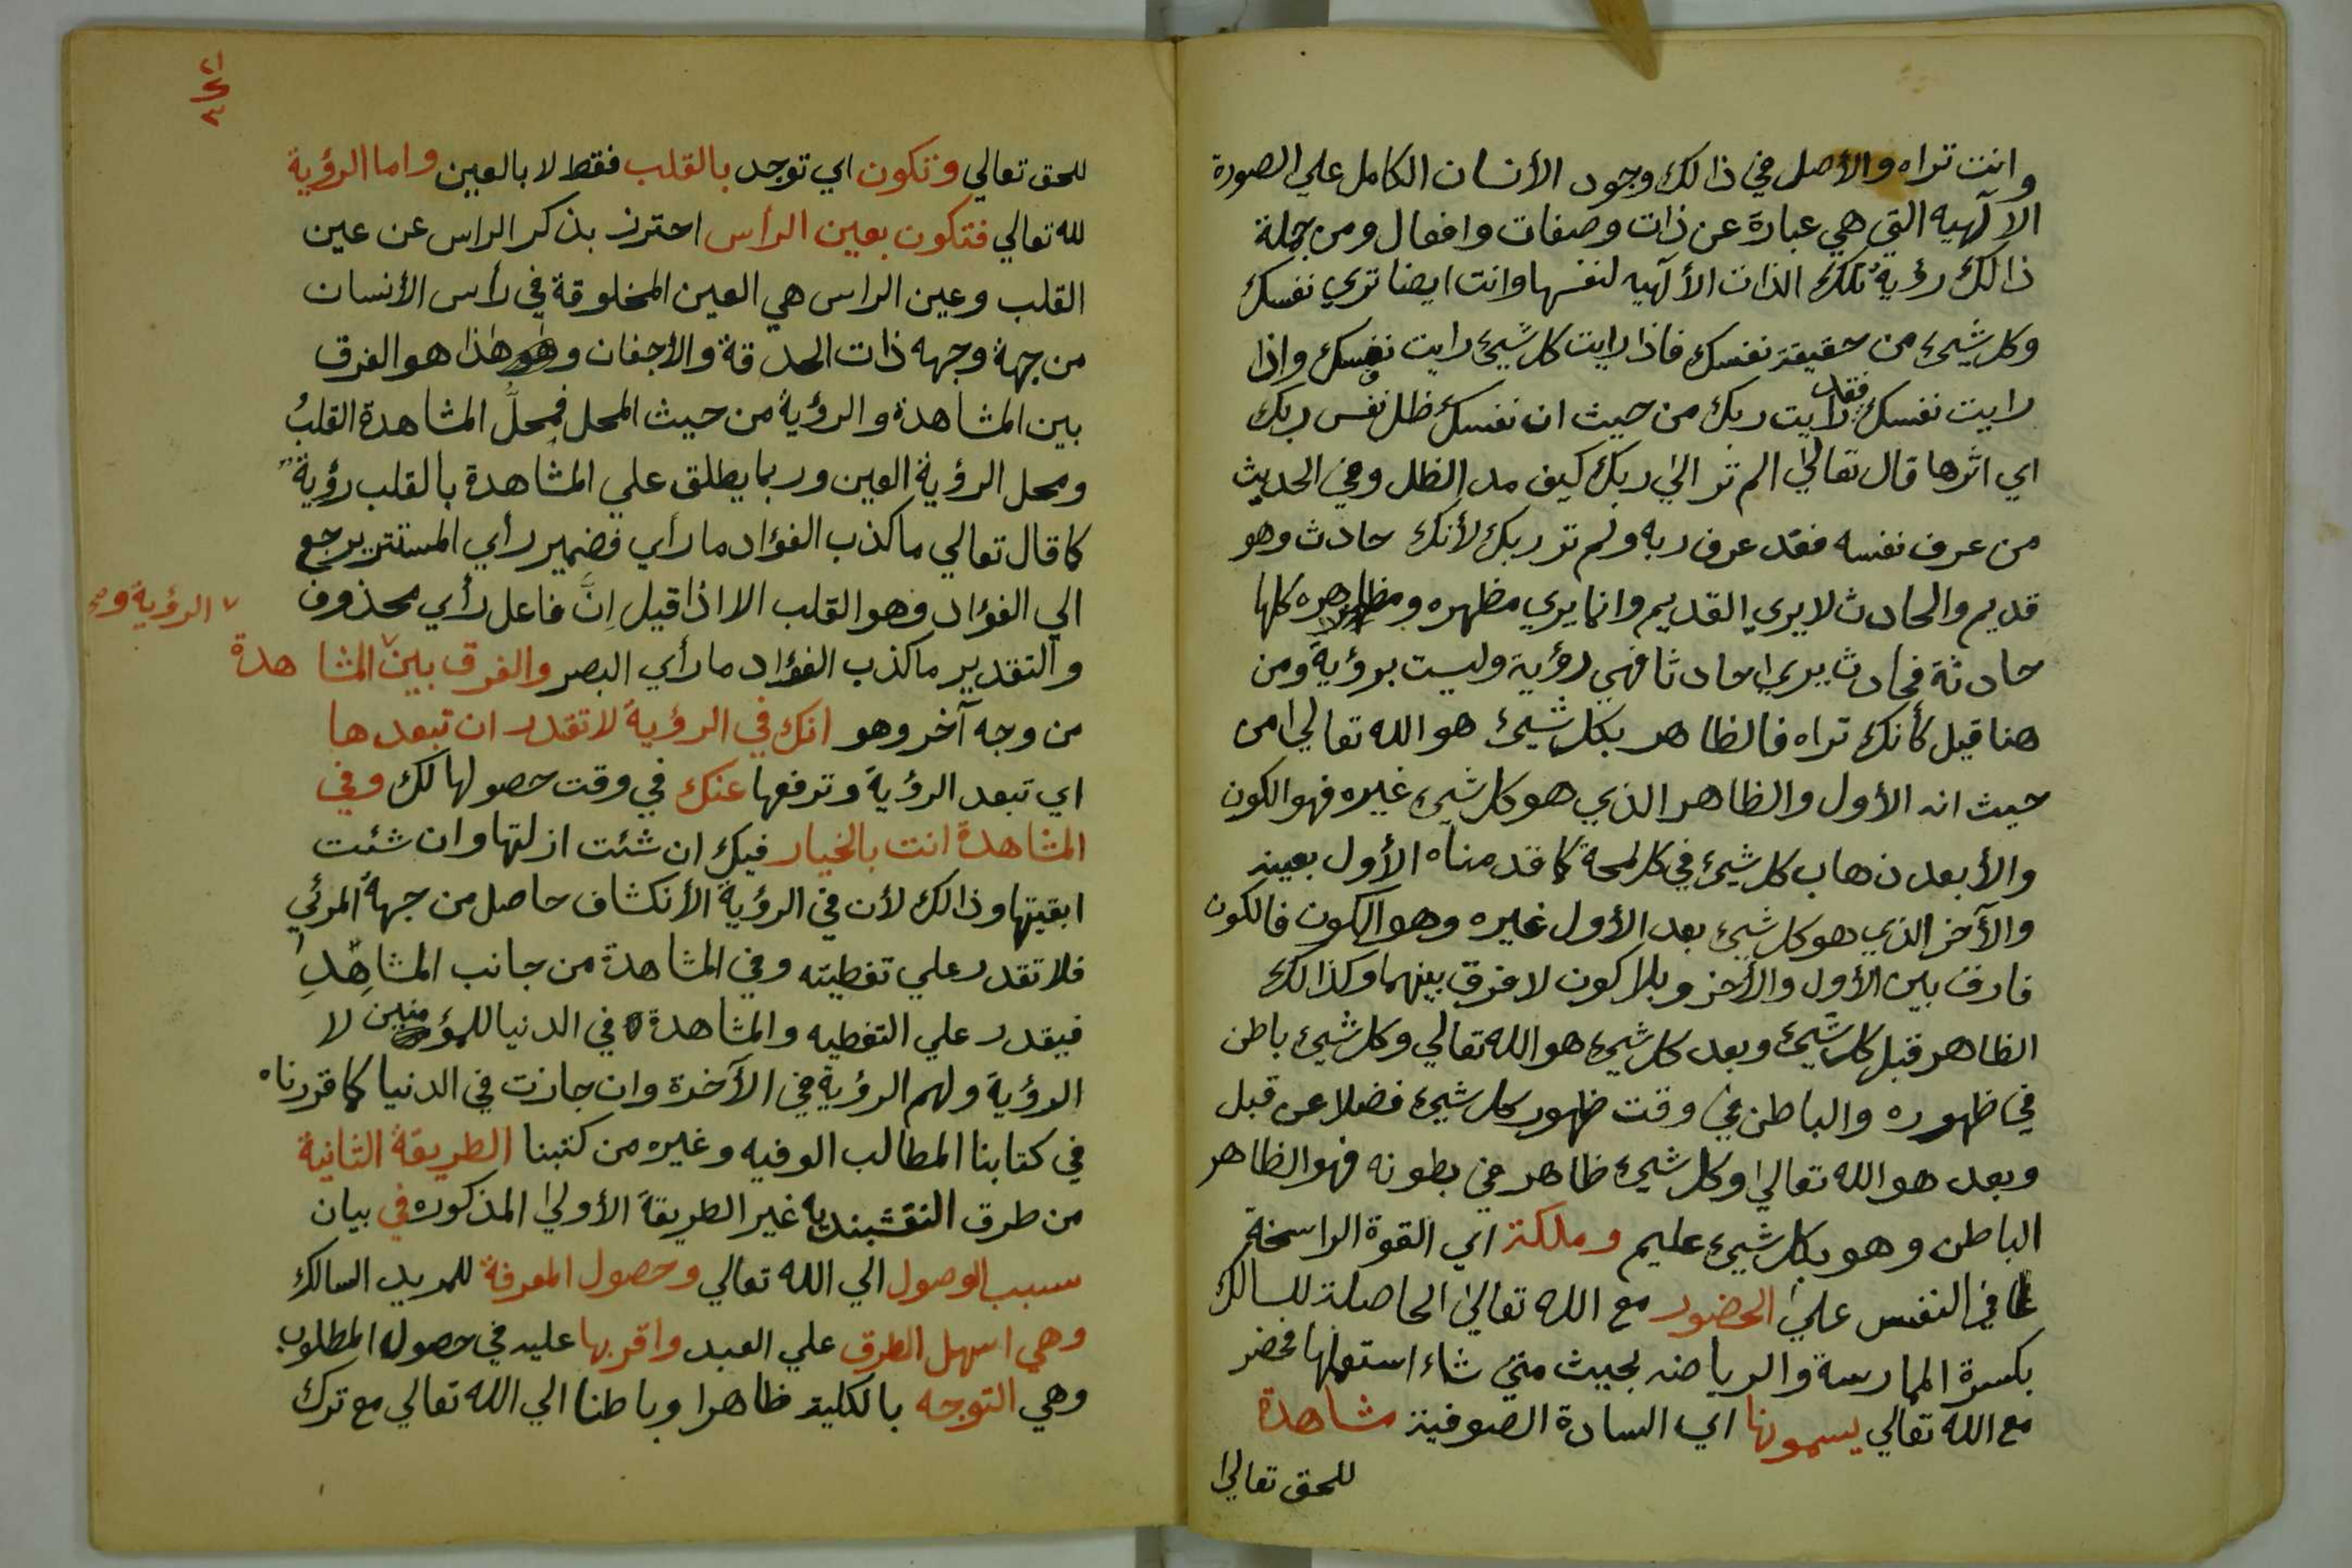 وانت تراه والأصل في ذالك وجود الأنسان الكامل علي الصورة
الالٓهيه التي هي عبارة عن ذات وصفات وافعال ومن جملة
ذالك رؤية تلك الذات الألٓهيه لنفسها وانت ايضا تري نفسك
وكل شيئ من حقيقة نفسك فاذا رايت كل شيئ رايت نفسك واذا
رايت نفسك فقد رايت ربك من حيث ان نفسك ظل نفس ربك
اي اثرها قال تعالي الم تر الي ربك كيف مد الظل وفي الحديث
من عرف نفسه فقد عرف ربه ولم تر ربك لأنك حادث وهو
قديم والحادث لا يري القديم وانما يري مظهره ومظاهره كلها
حادثة فحادث يري حادثا فهي رؤية وليست برؤية ومن
هنا قيل كأنك تراه فالظاهر بكل شيئ هو الله تعالي من
حيث انه الأول والظاهر الذي هو كل شيئ غيره فهو الكون
والأبعد ذهاب كل شيئ في كل لمحة كما قدمناه الأول بعينه
والآخر الذي هو كل شيئ بعد الأول غيره وهو الكون فالكون
فارق بين الأول والأخر وبلا كون لا فرق بينهما وكذالك
الظاهر قبل كل شيئ وبعد كل شيئ هو الله تعالي وكل شيئ باطن
في ظهوره والباطن في وقت ظهور كل شيئ فضلا عن قبل
وبعد هو الله تعالي وكل شيئ ظاهر في بطونه فهو الظاهر
الباطن وهو بكل شيئ عليم وملكة اي القوة الراسخة
في النفس علي الحضور مع الله تعالي الحاصلة للسالك
بكسرة الممارسة والرياضه بحيث متي شاء استعملها فحضر
مع الله تعالي يسمونها اي السادة الصوفية مشاهدة
للحق تعالي
للحق تعالي وتكون اي توجد بالقلب فقط لا بالعين واما الرؤية
لله تعالي فتكون بعين الرأس احترز بذكر الراس عن عين
القلب وعين الراس هي العين المخلوقة في رأس الأنسان
من جهة وجهه ذات الحدقة والأجفان وهذا هو الفرق
بين المشاهدة والرؤية من حيث المحل فمحلُّ المشاهدة القلبُ
ومحل الرؤية العين وربما يطلق علي المشاهدة بالقلب رؤية
كما قال تعالي ما كذب الفؤاد ما رأي فضمير رأي المستتر يرجع
الي الفؤاد وهو القلب الا اذا قيل اِنَّ فاعل رأي محذوف
والتقدير ما كذب الفؤاد ما رأي البصر والفرق بين المشاهدة
الرؤية و
من وجه آخر وهو انك في الرؤية لا تقدر ان تبعدها
اي تبعد الرؤية وترفعها عنك في وقت حصولها لك وفي
المشاهدة انت بالخيار فيك ان شئت ازلتها وان شئت
ابقيتها وذالك لأن في الرؤية الأنكشاف حاصل من جهة المرئي
فلا تقدر علي تغطيته وفي المشاهدة من جانب المشاهِدِ
فيقدر علي التغطيه والمشاهدة في الدنيا للمؤمنين لا
الرؤية ولهم الرؤية في الآخرة وان جازت في الدنيا كما قررناه
في كتابنا المطالب الوفيه وغيره من كتبنا الطريقة الثانية
من طرق النقشبنديه غير الطريقة الأولي المذكوره في بيان
سبب الوصول الي الله تعالي وحصول المعرفة للمريد السالك
وهي اسهل الطرق علي العبد واقربها عليه في حصول المطلوب
وهي التوجه بالكلية ظاهرا وباطنا الي الله تعالي مع ترك